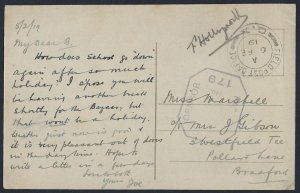 5/2/19
My Dear B.
How does School go down
again after so much
holiday? I 'spose you will
be having another break
shortly for the Bazaar, but
that wont be a holiday.
Weather just now is good &
it is very pleasant out of doors
in the day time. Hope to
write a letter in a few days
Your Joe
FIELD POST OFFICE
6 FE
19
179
Miss Marshall
c/o Mrs J Gibson
5 Westfield Tce
Pollard Lane
Bradford